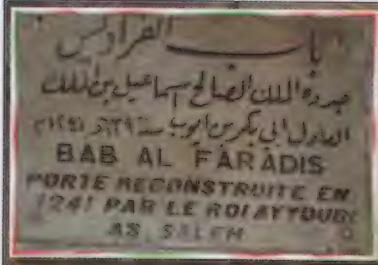 باب الفراديس
جدده الملك الصالح اسماعيل بن الملك
العادل ابي بكر بن ايوب سنة ٦٣٩هـ ١٢٤١م
BAB AL FARADIS
PORTE RECONSTRUITE EN
1241 PAR LE ROI AYYOUBI
AS SALEH